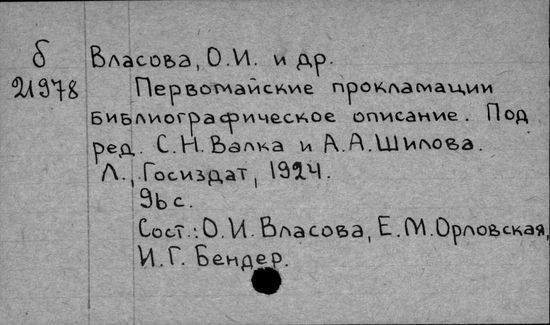 б Власова, О.И. и др.
21978 Первомайские прокламации
Библиографическое описание. Под
ред. С.Н. Валка и А.А. Шилова.
Л., Госиздат, 1924.
96 с.
Сост.: О.И. Власова, Е.М. Орловская,
И.Г. Бендер.